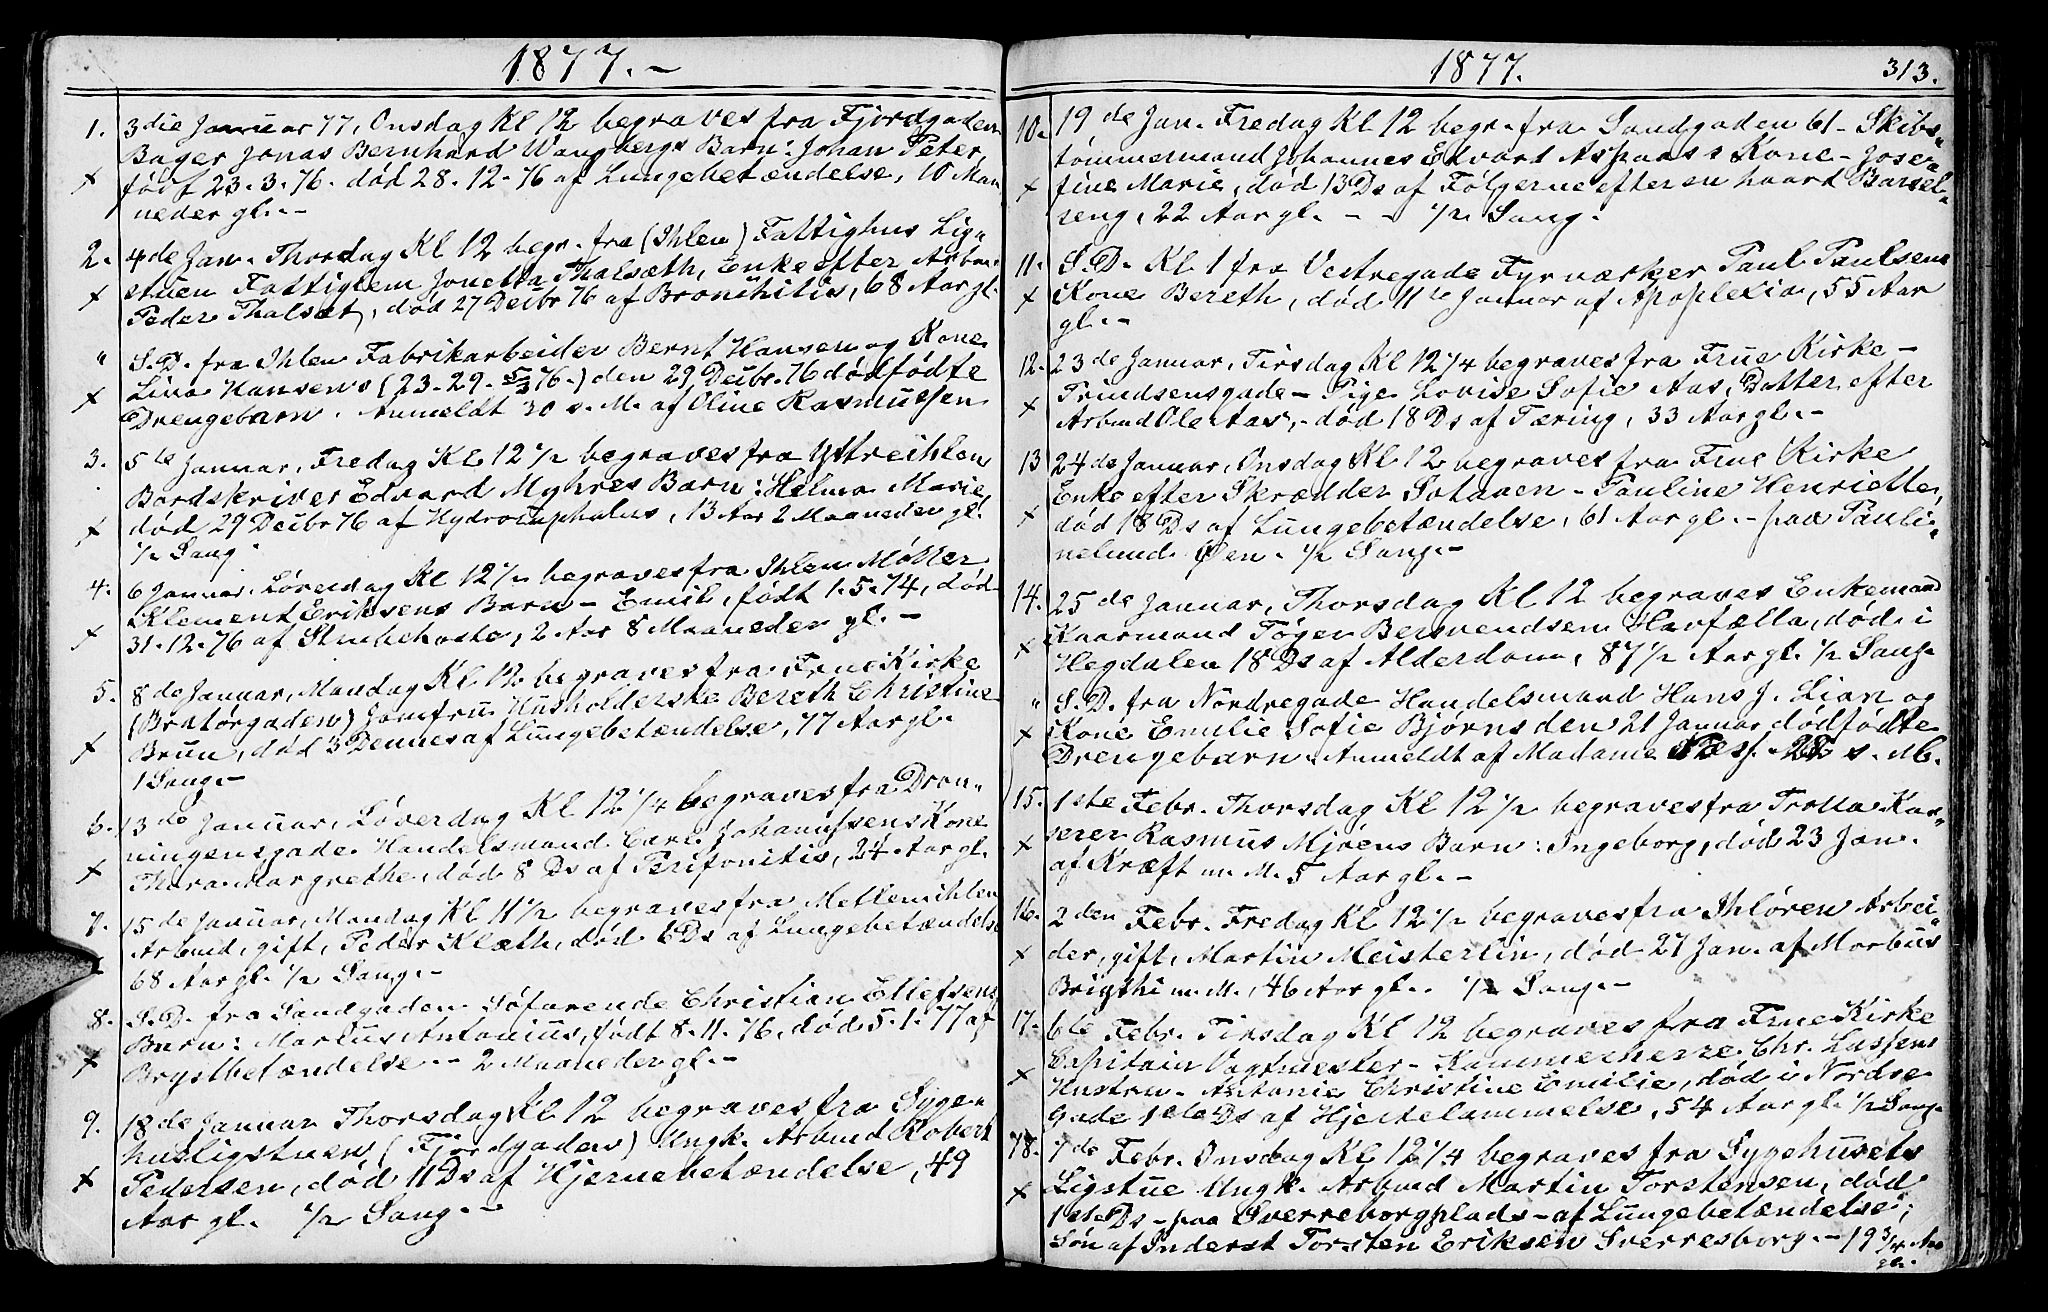 1877.-
1. 3die Januar 77, Onsdag Kl 12 begraves fra Fjordgaden
Bager Jonas Bernhard Wangbergs Barn: Johan Peter,
x født 23.3.76. død 28.12.76 af Lungebetændelse, 10 Maa
neder gl. -
2. 4de Jan. Thorsdag Kl 12 begr. fra (Ihlen) Fattighus Lig-
stuen Fattiglem Jonetta Thalsæth, Enke efter Arbm.
x Peder Thalsæt, død 27 Decbr 76 af Bronchitis, 68 Aar gl.
" S.D. fra Ihlen Fabrikarbeider Bernt Hansen og Kone
x Lina Hansens (23-29- 76.) den 29 Decbr. 76 dødfødte
Drengebarn. Anmeldt 30 s. M. af Oline Rasmussen
3. 5te Januar, Fredag Kl 12 1/2 begraves fra Ytreihlen
Bordskriver Edvard Myhres Barn: Helma Marie,
x død 29 Decbr 76 af Hydrocephalus, 13 Aar 2 Maaneder gl.
1/2 Sang
4. 6 Januar, Løverdag Kl 12 1/2 begraves fra Ihlen Møller
Klement Eriksens Barn - Emil, født 1.5.74, død
x 31.12.76 af Strubehoste, 2 Aar 8 Maaneder gl. -
5. 8de Januar, Mandag Kl 12 begraves fra Frue Kirke
(Bratørgaden) Jomfru Husholderske Bereth Christine
x Bruun, død 3 Dennes af Lungebetændelse, 77 Aar gl.
1 Sang. -
6. 13de Januar, Løverdag Kl 12 1/4 begraves fra Dron-
ningensgade Handelsmand Carl Johanssens Kone
x Thora Margrethe, død 8 Ds af Peritonitis, 24 Aar gl.
7. 15de Januar, Mandag Kl 11 1/2 begraves fra Mellemihlen
Arbmd, gift, Peder Klæth, død 6 Ds af Lungebetændelse
x 68 Aar gl. 1/2 Sang. -
8. S.D. fra Sandgaden Søfarende Christian Ellefsens
Barn: Marius Antonius, født 8.11.76, død 5.1.77 af
x Brystbetændelse. - 2 Maaneder gl. -
9. 18de Januar Thorsdag Kl 12 begraves fra Syge-
husligstuen (Fjordgaden) Ungk. Arbmd Robert
x Pedersen, død 11 Ds af Hjernebetændelse, 49
Aar gl. 1/2 Sang. -
1877. 313.
10. 19de Jan. Fredag Kl 12 begr. fra Sandgaden 61 - Skibs-
tømmermand Johannes Edvart Aspaas's Kone - Jose-
x fine Marie, død 13 Ds af Følgerne efter en haard Barsel-
seng, 22 Aar gl. - - 1/2 Sang.
11. S.D. Kl 1 fra Vestregade Fyrværker Paul Paulsens
x Kone Bereth, død 11te Januar af Apoplexia, 55 Aar
gl. -
12. 23de Januar, Tirsdag Kl 12 1/4 begraves fra Frue Kirke -
Prindsensgade - Pige Lovise Sofie Aas, Datter efter
x Arbmd Ole Aas, - død 18 Ds af Tæring, 33 Aar gl. -
13 24de Januar, Onsdag Kl 12 begraves fra Frue Kirke
Enke efter Skrædder - Pauline Henriette,
x død 18 Ds af Lungebetændelse, 61 Aar gl. - paa Pauli-
nelund Øen. 1/2 Sang. -
14. 25de Januar, Thorsdag Kl 12 begraves Enkemand
x Kaarmand Tøger Bersvendsen Havfælla, død i
Hegdalen 18 Ds af Alderdom, 87 1/2 Aar gl. 1/2 Sang.
" S.D. fra Nordregade Handelsmand Hans J. Lian og
x Kone Emilie Sofie Bjørns den 21 Januar dødfødte
Drengebarn. Anmeldt af Madame Næss s. M.
15. 1ste Febr. Thorsdag Kl 12 1/2 begraves fra Trolla Kas-
x serer Rasmus Mjøens Barn: Ingeborg, død 23 Jan.
af Kræft m. M. 5 Aar gl. -
16. 2den Febr. Fredag Kl 12 1/2 begraves fra Ihløren Arbei-
x der, gift, Martin Meisterlin, død 27 Jan. af Morbus
Brigthi m. M., 46 Aar gl. 1/2 Sang. -
17. 6te Febr. Tirsdag Kl 12 begraves fra Frue Kirke
x Capitain Vagtmester - Kammerherre Chr. Lassens
Hustru - Antonie Christine Emilie, død i Nordre
gade 1ste Ds af Hjertelammelse, 54 Aar gl. 1/2 Sang.
18. 7de Febr. Onsdag Kl 12 1/4 begraves fra Sygehusets
x Ligstue Ungk. Arbmd Martin Torstensen, død
1ste Ds - paa Sverreborgplads - af Lungebetændelse;
Søn af Inderst Torsten Eriksen Sverresborg. - 19 3/4 Aar
gl.